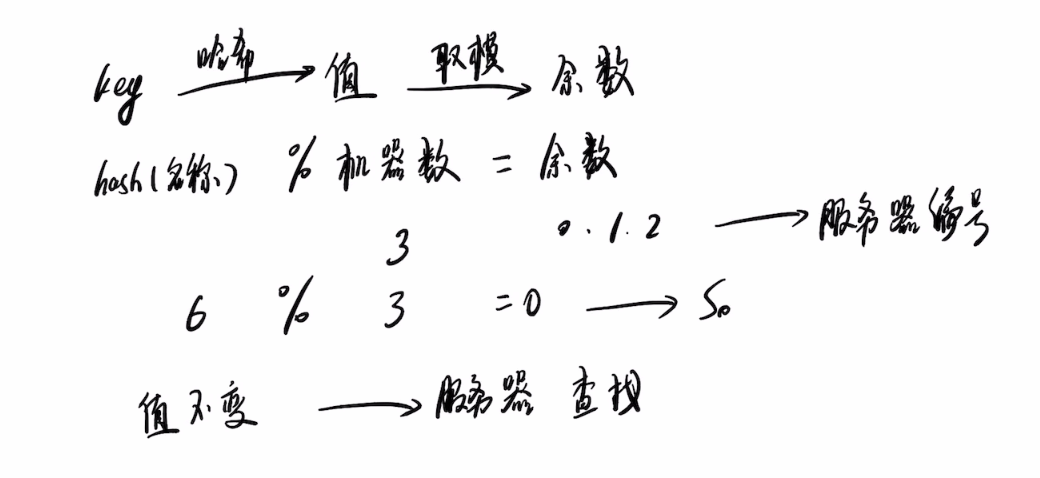 key 哈希 → 值 取模 → 余数
hash(名称) % 机器数 = 余数
3 0.1.2 → 服务器编号
6 % 3 = 0 → S₀
值不变 → 服务器 查找